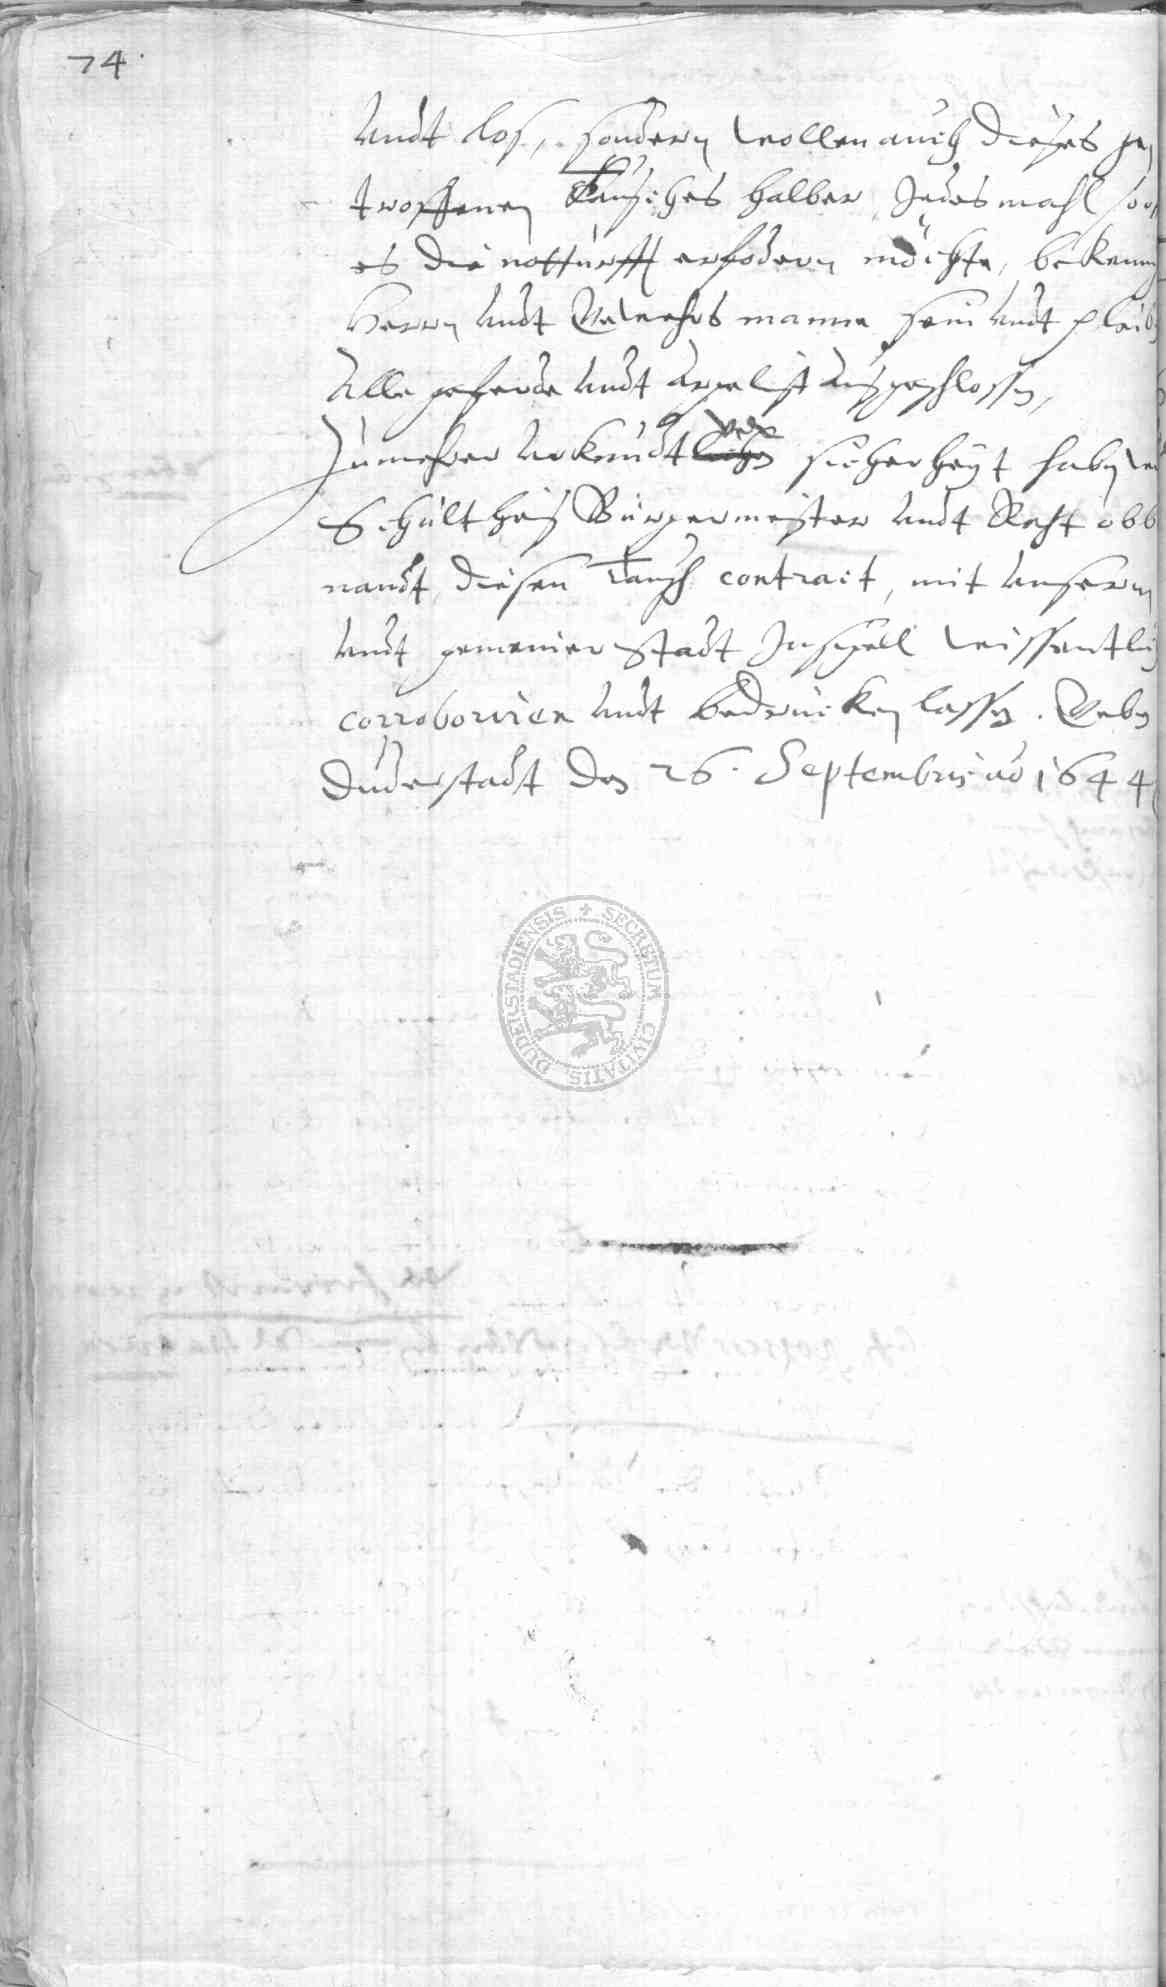 74.
undt los, sondern wollen auch dieses ge
troffenen Tausches halber Jedes mahl so offt
es die notturfft erfodern möchte, bekenn
Herrn undt Gewehrs manne sein undt pleib
Alle geferde undt argelist ausgeschlossen,
Zu mehrer Urkundt sicherheyt haben wir
Schultheis Bürgermeister undt Raht obb
nandt, diesen Tausch contract, mit unserm
undt gemeiner Stadt Insigell wissentlich
corroboriren undt bedrucken lassen. Geben
Duderstadt den 26. Septembris ao 1644
SECRETUM CIVITATIS DUDERSTADIENSIS